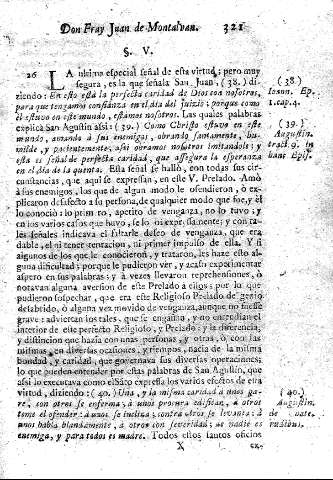 Don Fray Juan de Montalvan. 321
§. V.
26 LA ultima especial señal de esta virtud; pero muy
segura, es la que señala San Juan, (38.) di-
ziendo: En esto está la perfecta caridad de Dios con nosotros,
para que tengamos confianza en el dia del juizio; porque como
él estuvo en este mundo, estamos nosotros. Las quales palabras
explica San Agustin assi: (39.) Como Christo estuvo en este
mundo, amando à sus enemigos, obrando santamente, hu-
milde, y pacientemente, assi obramos nosotros imitandole; y
esta es señal de perfecta caridad, que assegura la esperanza
en el dia de la quenta. Esta señal se halló, con todas sus cir-
cunstancias, que aqui se expressan, en este V. Prelado. Amó
à sus enemigos, los que de algun modo le ofendieron, ò ex-
plicaron desafecto à su persona, de qualquier modo que fue, y él
lo conoció: lo primero, apetito de venganza, no lo tuvo, y
en los varios casos que huvo, se lo vi expressamente; y con ta-
les señales indicava el faltarle deseo de venganza, que era
dable, el ni tener tentacion, ni primer impulso de ella. Y si
algunos de los que le conocieron, y trataron, les haze esto al-
guna dificultad; porque le pudieron ver, y acaso experimentar
aspero en sus palabras; y à vezes llevaron reprehensiones, ò
notavan alguna aversion de este Prelado à ellos; por lo que
pudieron sospechar, que era este Religioso Prelado de genio
desabrido, ò alguna vez movido de venganza, aunque no fuesse
grave: adviertan los tales, que se engañan, y no entendian el
interior de este perfecto Religioso, y Prelado; y la diferencia,
y distincion que hazia con unas personas, y otras, ò con las
mismas, en diversas ocasiones, y tiempos, nacia de la misma
bondad, y caridad, que governava sus diversas operaciones;
lo que pueden entender por estas palabras de San Agustin, que
assi lo executava como el Santo expressa los varios efectos de esta
virtud, diziendo: (40.) Una, y la misma caridad à unos pa-
re, con otros se enferma; à unos procura edificar, à otros
teme el ofender: à unos se inclina; contra otros se levanta: à
unos habla blandamente, à otros con severidad; de nadie es
enemiga, y para todos es madre. Todos estos santos oficios
X ex-
(38.)
Ioann. Ep.
1. cap. 4.
(39.)
Augustin.
tract. 9. in
hanc Epist.
(40.)
Augustin.
de Cate.
rudibus.